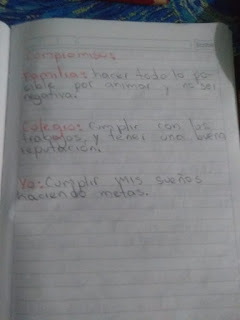 Compromisos
Familia: hacer todo lo po-
sible por animar y no ser
negativa.
Colegio: Cumplir con los
trabajos, y tener una buena
reputación.
Yo: Cumplir mis sueños
haciendo metas.